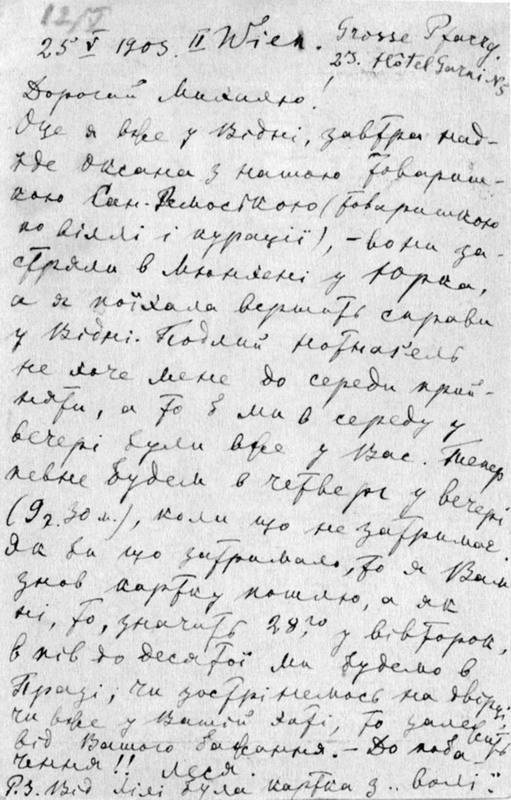 12/V
25 V 1903. II Wien. Grosse Pfarrg.
23. Hôtel Garni № 5
Дорогий Михайлю!
Оце я вже у Відні, завтра над-
їде Оксана з нашою товариш-
кою Сан-Ремоською (товаришкою
по віллі і курації), – вони за-
стряли в Мюнхені у Юрка,
а я поїхала вершить справи
у Відні. Подлий Нотнаґель
не хоче мене до середи прий-
няти, а то б ми в середу у
вечері були вже у Вас. Тепер
певне будем в четверг у вечері
(9 г. 30 м.), коли що не затримає.
Як би що затримало, то я Вам
знов картку пошлю, а як
ні, то, значить 28го, у вівторок,
в пів до десятої ми будемо в
Празі; чи зострінемось на двірці,
чи вже у Вашій хаті, то залежить
від Вашого бажання. – До поба-
чення!! Леся.
P.S. Від Лілі була картка з „волі".